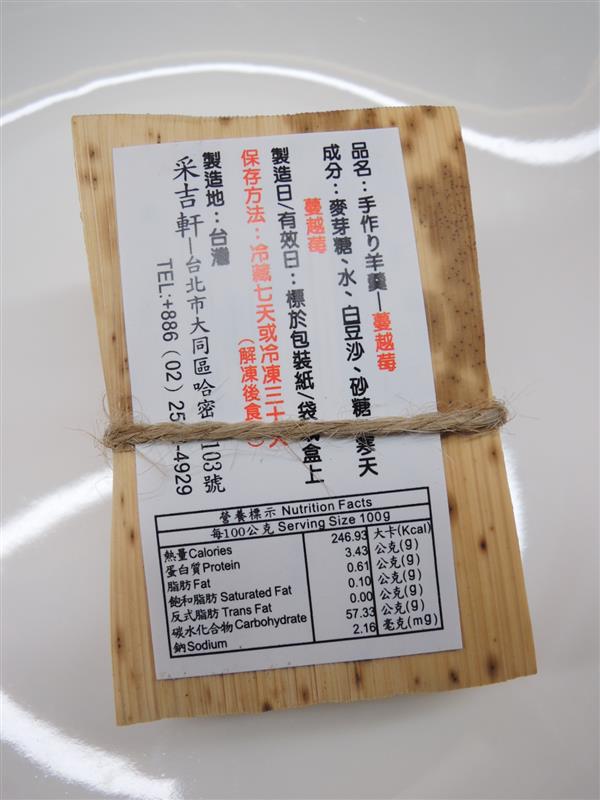 品名：手作り羊羹—蔓越莓
成分：麥芽糖、水、白豆沙、砂糖 寒天
蔓越莓
製造日/有效日：標於包裝紙/袋 盒上
保存方法：冷藏七天或冷凍三十天
(解凍後食 )
製造地：台灣
采吉軒—台北市大同區哈密 103號
TEL:+886 (02) 25 -4929
營養標示 Nutrition Facts
每100公克 Serving Size 100g
熱量Calories 246.93 大卡(Kcal)
蛋白質Protein 3.43 公克(g)
脂肪Fat 0.61 公克(g)
飽和脂肪 Saturated Fat 0.10 公克(g)
反式脂肪 Trans Fat 0.00 公克(g)
碳水化合物Carbohydrate 57.33 公克(g)
鈉Sodium 2.16 毫克(mg)